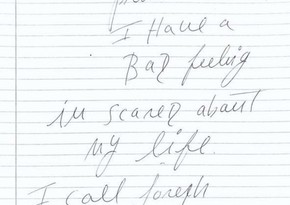 I Have a
Bad feeling
im scared about
my life.
I call Joseph